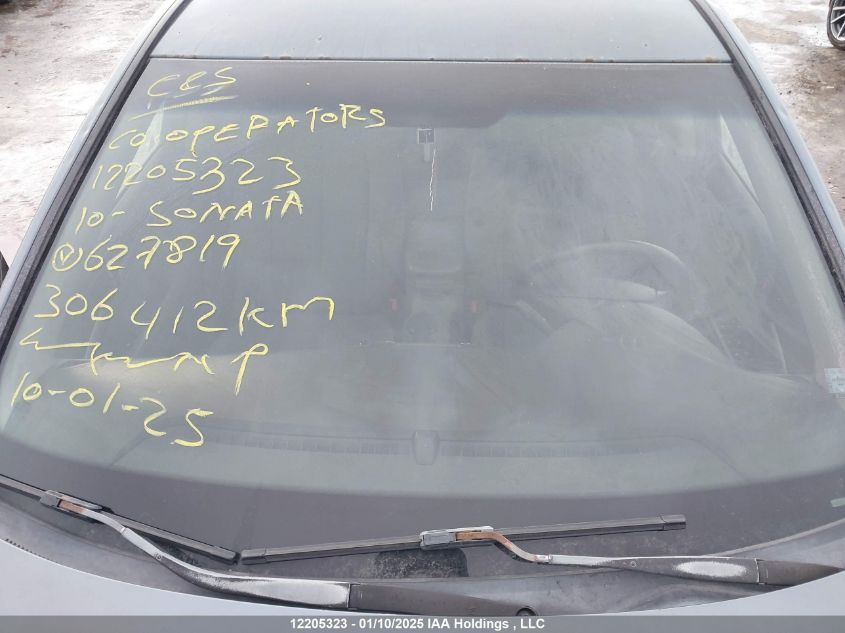 C&S
CO.OPERATORS
12205323
10- SONATA
Ⓥ627819
306412KM
10-01-25
12205323 - 01/10/2025 IAA Holdings , LLC